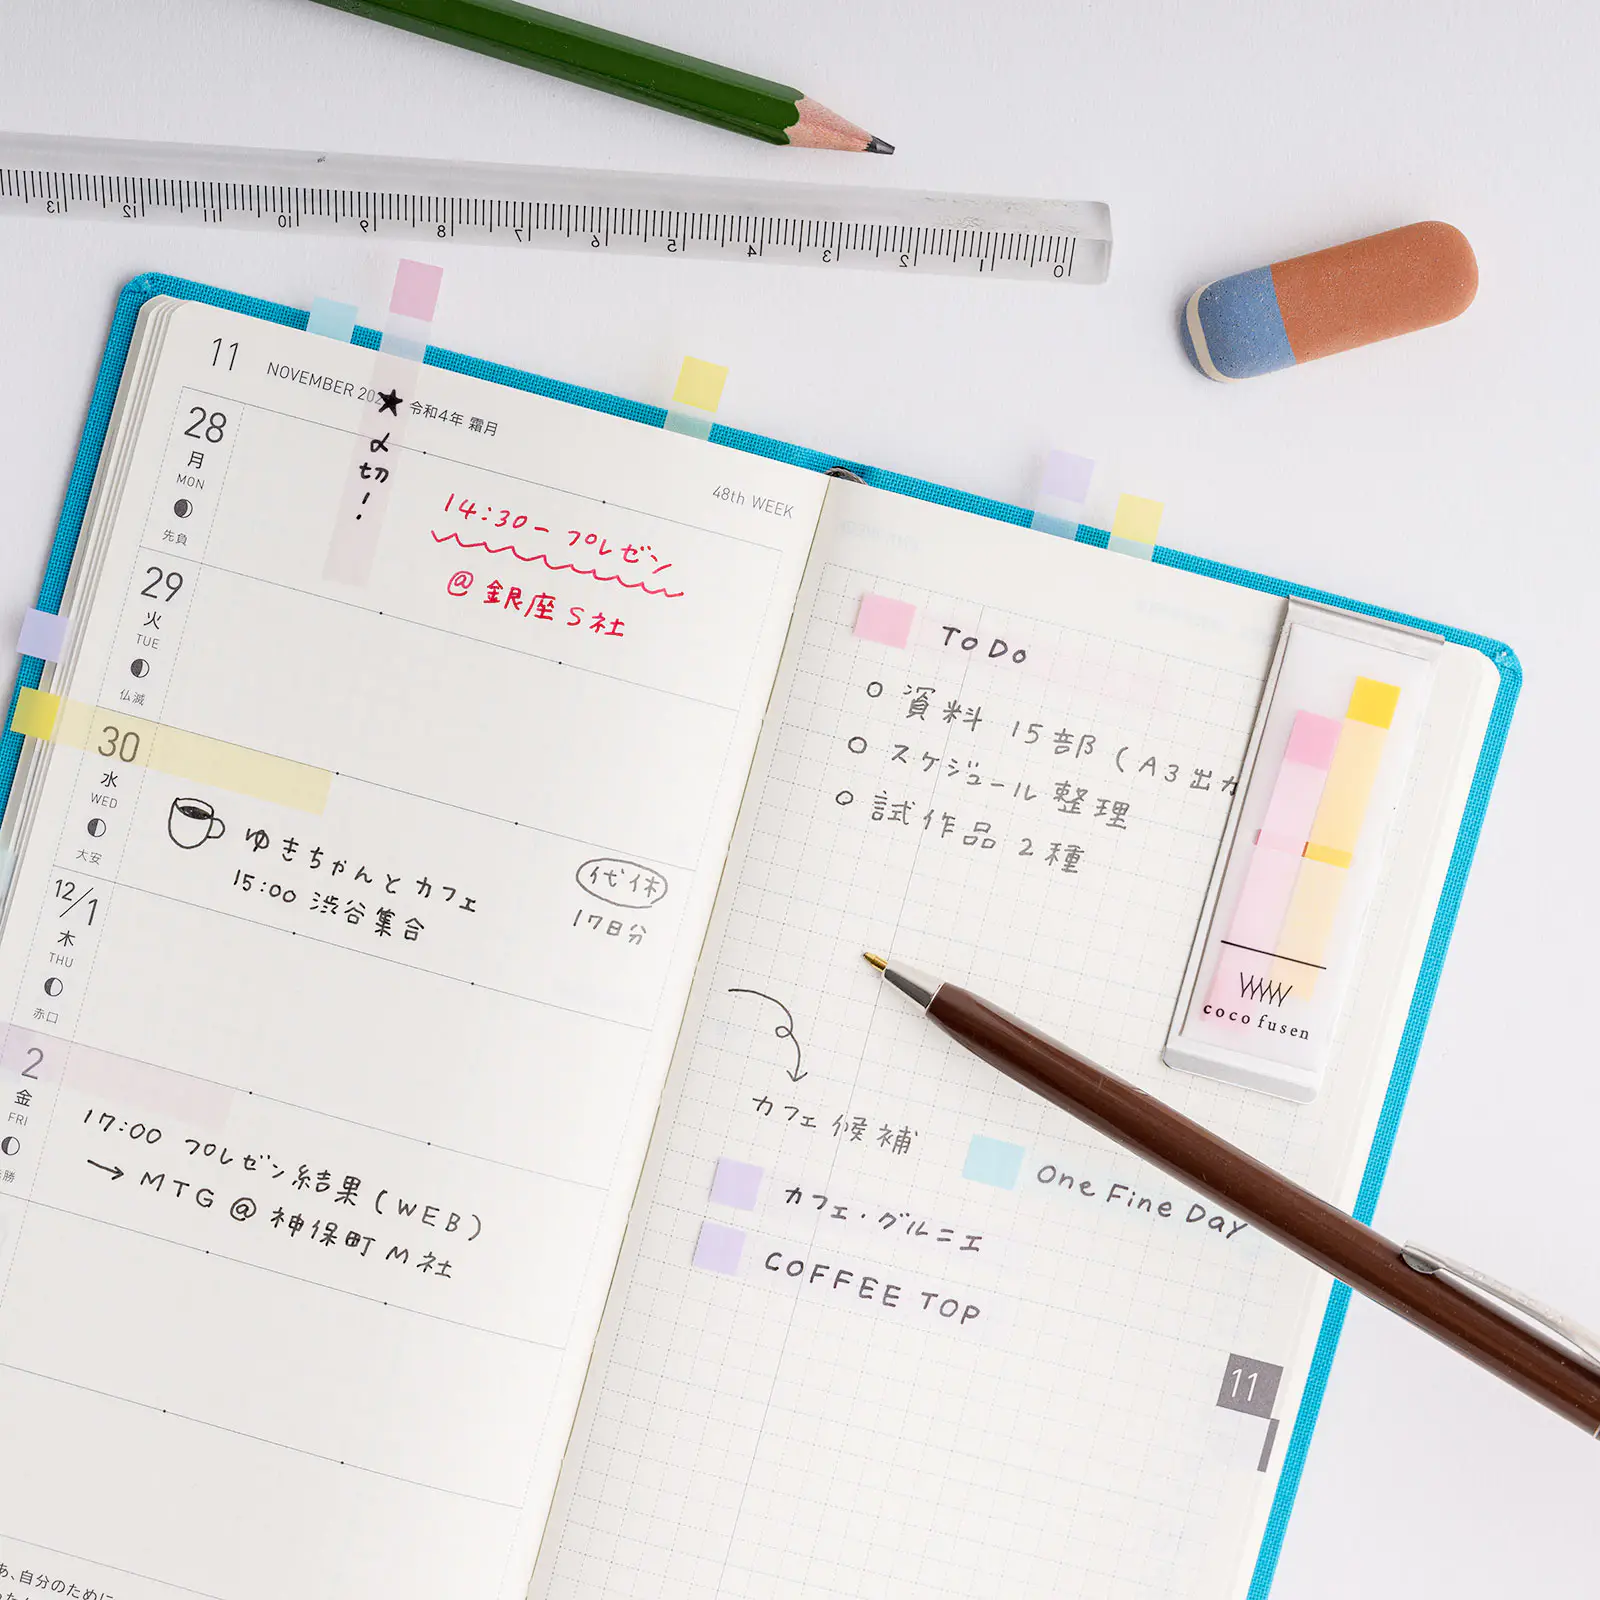 13 12 11 10 9 8 7 6 5 4 3 2 1 0
11
NOVEMBER
令和4年 霜月
48th WEEK
28
月
MON
先負
★
〆切!
14:30-プレゼン
@銀座S社
29
火
TUE
仏滅
30
水
WED
大安
ゆきちゃんとカフェ
15:00 渋谷集合
代休
17日分
12/1
木
THU
赤口
2
金
FRI
勝
17:00 プレゼン結果(WEB)
→MTG@神保町M社
あ、自分のために
ToDo
○ 資料 15部(A3出力
○ スケジュール整理
○ 試作品2種
カフェ候補
One Fine Day
カフェ・グルニエ
COFFEE TOP
coco fusen
11